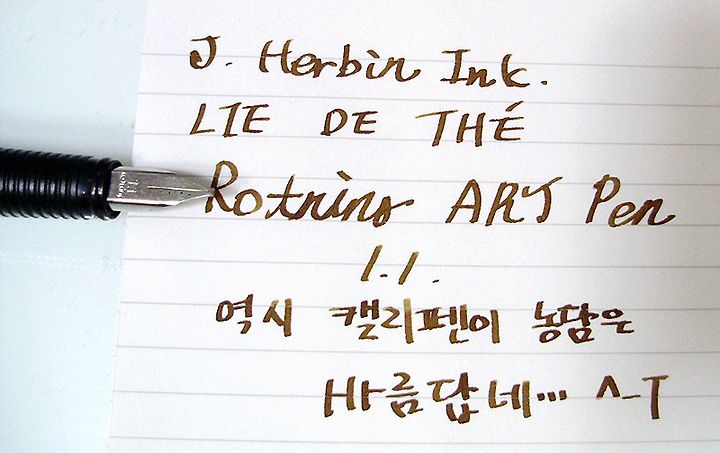 J. Herbin Ink.
LIE DE THÉ
Rotring ART Pen
1.1.
역시 캘리펜이 농담은
바름답네... ^-T